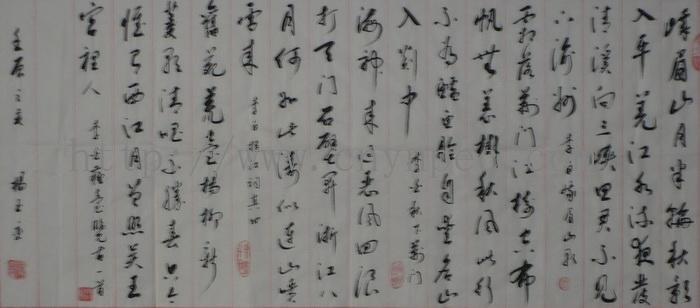 峨眉山月半輪秋影
入平羌江水流夜發
清溪向三峽思君不見
下渝州 李白峨眉山月歌
霜落荊門江樹空布
帆無恙掛秋風此行
不為鱸魚膾自愛名山
入剡中 李白秋下荊門
海神來過惡風回浪
打天門石壁開浙江八
月何如此濤似連山噴
雪來 李白橫江詞其四
舊苑荒臺楊柳新
菱歌清唱不勝春只今
惟有西江月曾照吳王
宮裡人 李白蘇臺覽古一首